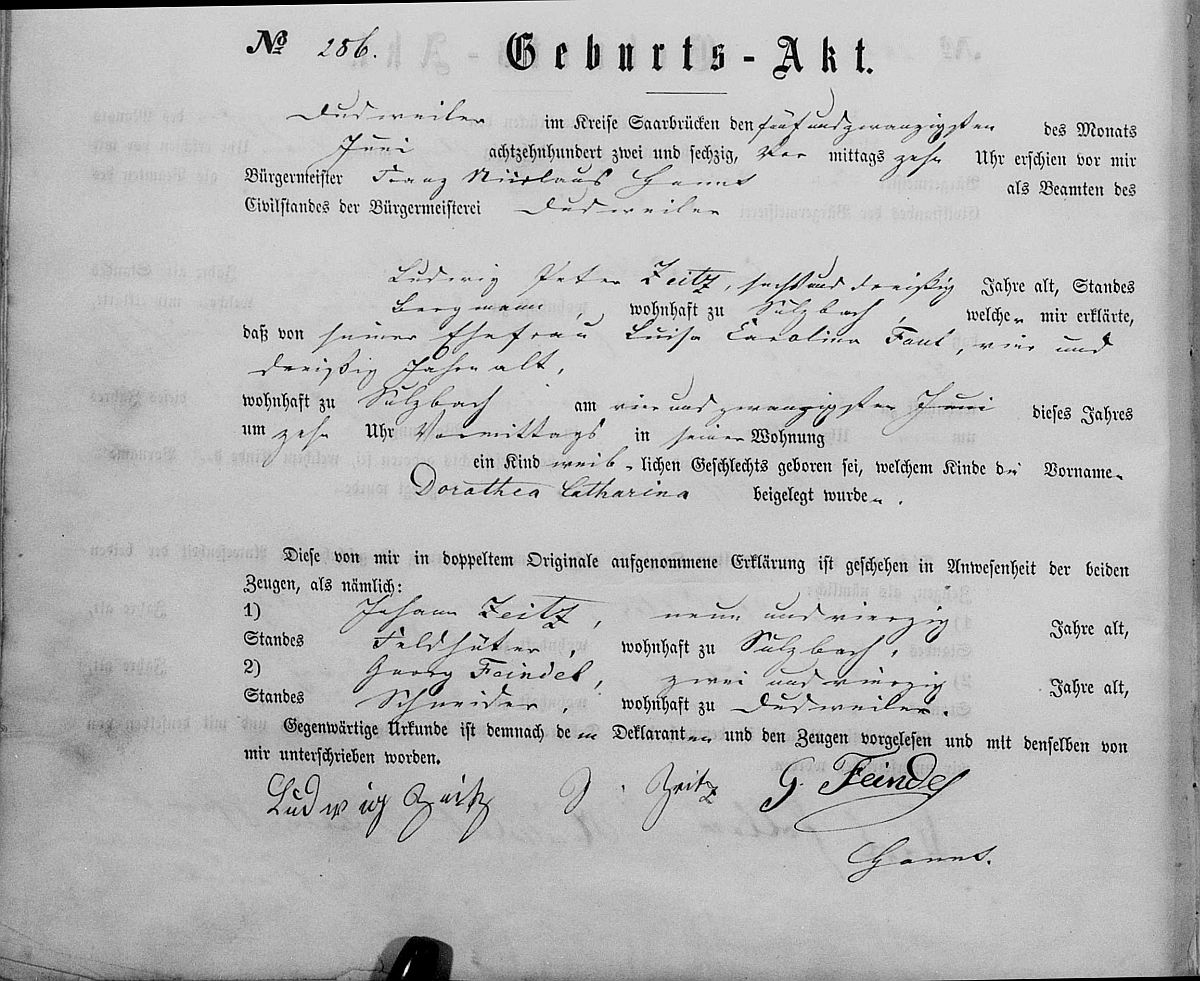 No 286. Geburts-Akt.
Dudweiler im Kreise Saarbrücken den fünf und zwanzigsten des Monats
Juni achtzehnhundert zwei und sechzig, Vor mittags zehn Uhr erschien vor mir
Bürgermeister Franz Nicolaus als Beamten des
Civilstandes der Bürgermeisterei Dudweiler
Ludwig Peter Zeitz, sechs und dreißig Jahre alt, Standes
Bergmann, wohnhaft zu Sulzbach, welcher mir erklärte,
daß von seiner Ehefrau Luisa Carolina Faut, vier und
dreißig Jahre alt,
wohnhaft zu Sulzbach, am vier und zwanzigsten Juni dieses Jahres
um zehn Uhr Vormittags in seiner Wohnung
ein Kind weiblichen Geschlechts geboren sei, welchem Kinde die Vornamen
Dorothea Catharina beigelegt wurden.
Diese von mir in doppeltem Originale aufgenommene Erklärung ist geschehen in Anwesenheit der beiden
Zeugen, als nämlich:
1) Johann Zeitz, neun und vierzig Jahre alt,
Standes Feldhüter, wohnhaft zu Sulzbach,
2) Georg Feindel, zwei und vierzig Jahre alt,
Standes Schneider, wohnhaft zu Dudweiler.
Gegenwärtige Urkunde ist demnach dem Deklaranten und den Zeugen vorgelesen und mit denselben von
mir unterschrieben worden.
Ludwig Zeitz J. Zeitz G. Feindel